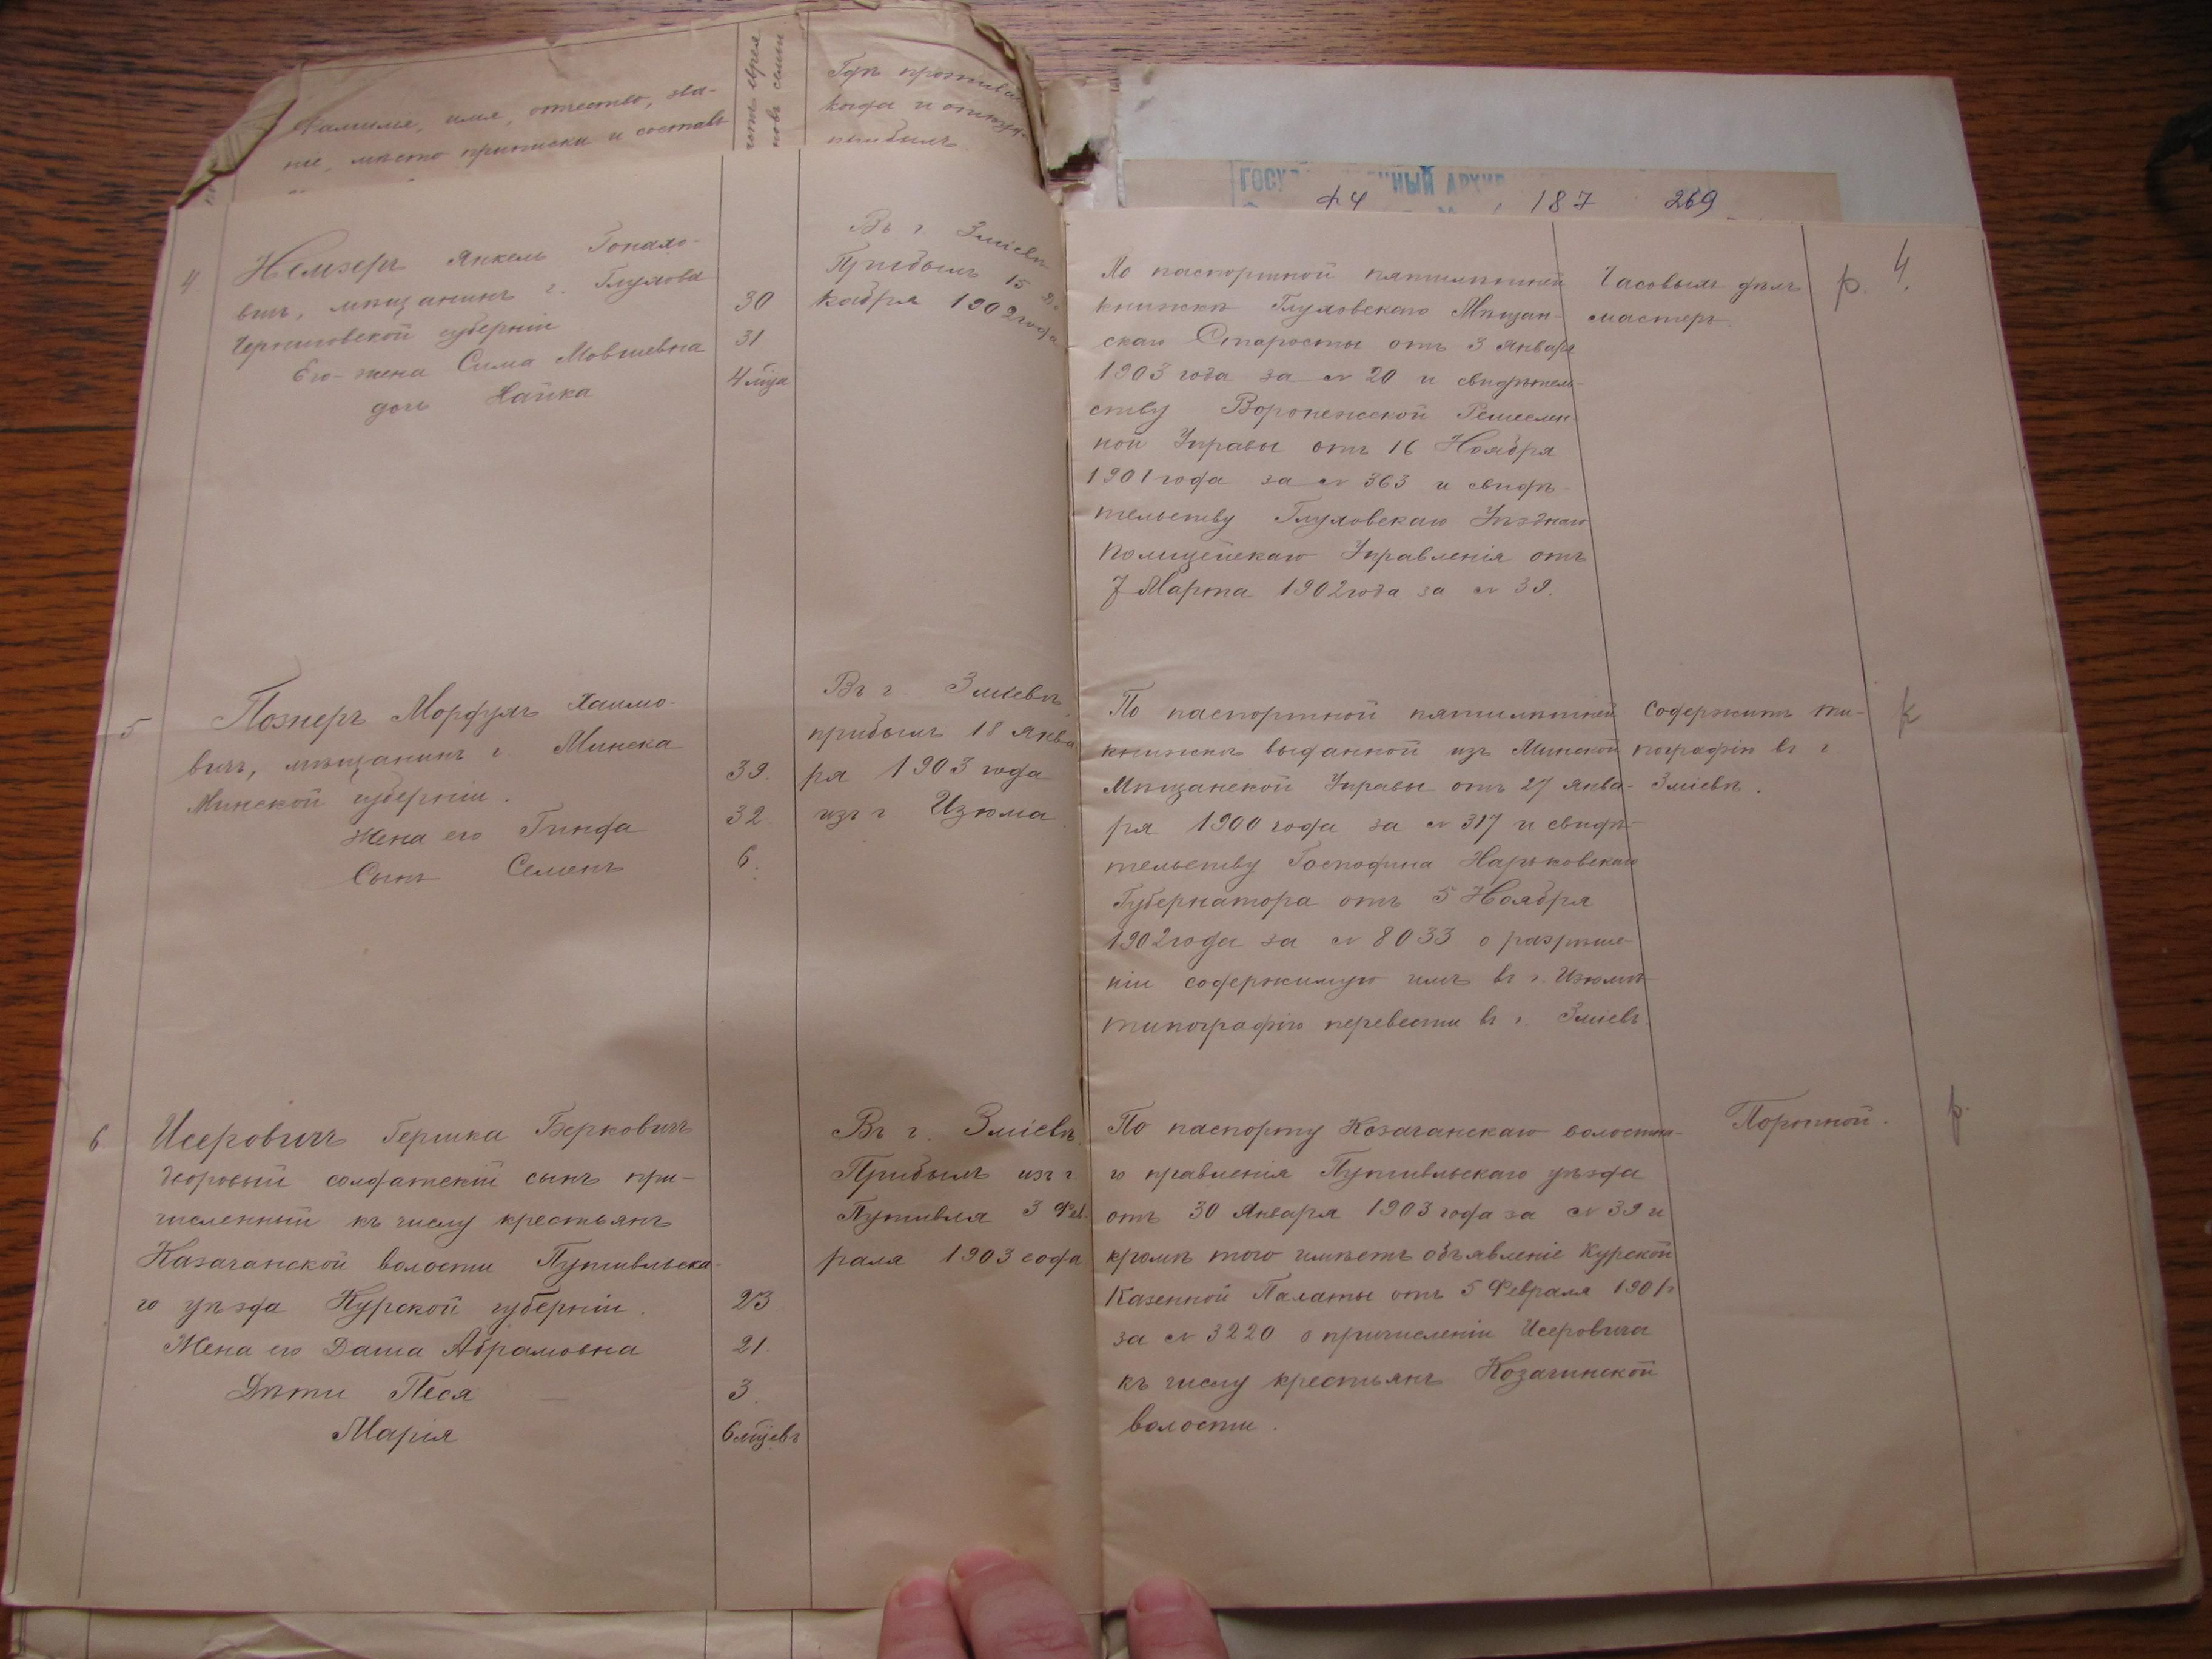 Фамилія, имя, отчество, зва-
ніе, мѣсто приписки и составъ
Гдѣ проживаетъ
когда и откуда
прибылъ.
ф4 187 269
4.
4
Немзеръ Янкель
вичъ, мѣщанинъ г. Глухова
Черниговской губерніи
30
Его-жена Сима Мовшевна
31
дочь Хайка
4 мѣца
Въ г. Зміевѣ
Прибылъ 15 Де-
кабря 1902 года
По паспортной пятилѣтней
книжкѣ Глуховскаго Мѣщан-
скаго Старосты отъ 3 Января
1903 года за № 20 и свидѣтель-
ству Воронежской Ремеслен-
ной Управы отъ 16 Ноября
1901 года за № 363 и свидѣ-
тельству Глуховскаго Уѣзднаго
Полицейскаго Управленія отъ
7 Марта 1902 года за № 39.
Часовыхъ дѣлъ
мастеръ.
р.
5
Познеръ Мордухъ Хаимо-
вичъ, мѣщанинъ г. Минска
Минской губерніи.
39.
Жена его Гинда
32.
Сынъ Семенъ
6.
Въ г. Зміевѣ,
прибылъ 18 Янва
ря 1903 года
изъ г Изюма
По паспортной пятилѣтней
книжкѣ выданной изъ Минской
Мѣщанской Управы отъ 27 Янва-
ря 1900 года за № 317 и свидѣ-
тельству Господина Харьковскаго
Губернатора отъ 5 Ноября
1902 года за № 8033 о разрѣше-
ніи содержимую имъ въ г. Изюмѣ
типографію перевести въ г. Зміевъ.
Содержитъ ти-
пографію въ г
Зміевѣ.
6
Исеровичъ Гершка Берковичъ
солдатскій сынъ при-
численный къ числу крестьянъ
Казачанской волости Путивльска-
го уѣзда Курской губерніи.
23
Жена его Даша Абрамовна
21.
Дѣти Песя
3.
Марія
6 мѣцевъ
Въ г. Зміевѣ.
Прибылъ изъ г
Путивля 3 Фев
раля 1903 года
По паспорту Козачанскаго волостна-
го правленія Путивльскаго уѣзда
отъ 30 Января 1903 года за № 39 и
кромѣ того имѣетъ объявленіе Курской
Казенной Палаты отъ 5 Февраля 1901 г
за № 3220 о причисленіи Исеровича
къ числу крестьянъ Козачинской
волости.
Портной.
р.